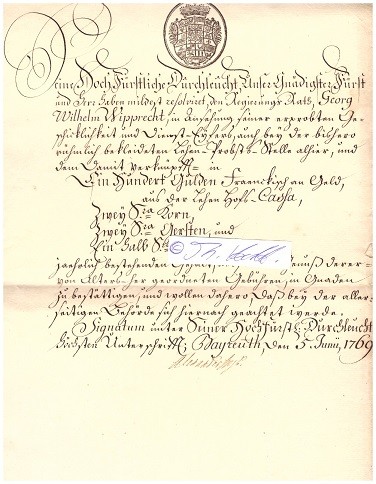 Seine Hoch Fürstliche Durchleucht, Unser Gnädigster Fürst
und Herr haben mildest resolviret, den Regierungs Rath, Georg
Wilhelm Wipprecht, in Ansehung seiner erprobten Ge-
schicklichkeit und Dienst-Eyfers, auch bey der bishero
rühmlich bekleideten Lehen-Probsts-Stelle alhier, und
dem damit verknüpfften
Ein Hundert Gulden Fraenckisch an Geld,
aus der Lehen Hofs-Cassa,
Zwey Sra Korn,
Zwey Sra Gersten, und
Ein halb
© Th. Vahl
jaehrlich bestehenden derer
von Alters her geordneten Gebühren, in Gnaden
zu bestättigen, und wollen dahero daß bey der aller-
seitigen Behörde sich hiernach geachtet werde.
Signatum unter Seiner Hochfürstl. Durchleucht
höchsten Unterschrifft, Bayreuth, den 5. Junii, 1769
Alexander